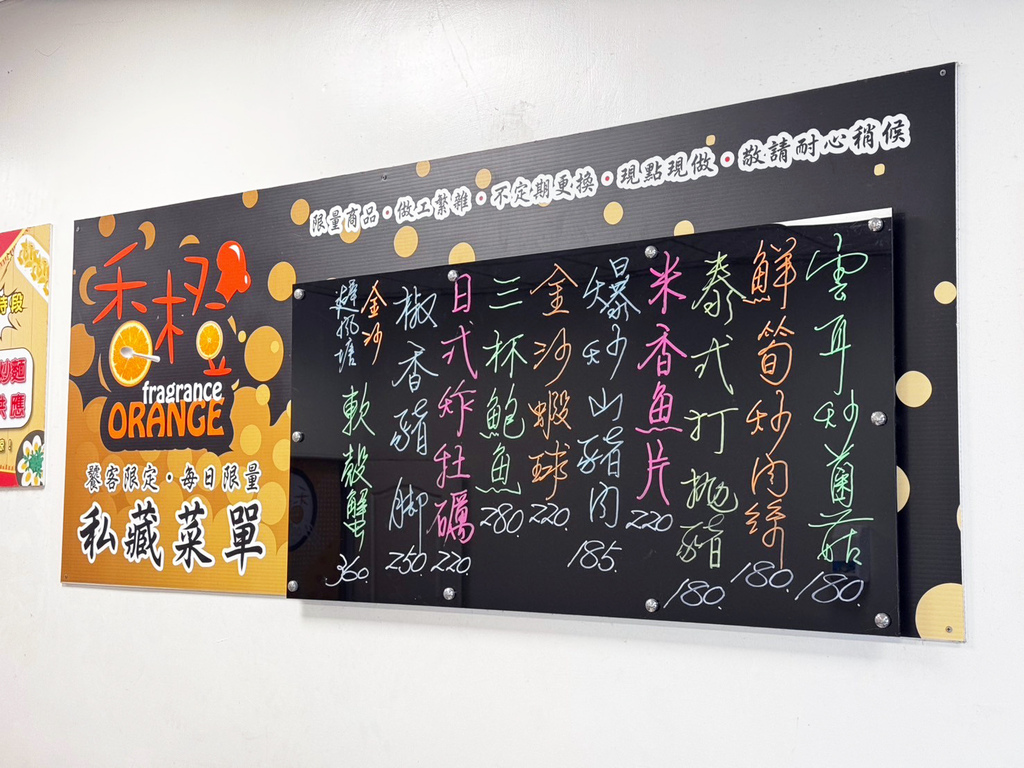 限量商品•做工繁雜•不定期更換•現點現做•敬請耐心稍候
禾橙
fragrance
ORANGE
饕客限定•每日限量
私藏菜單
雲耳炒菌菇 180.
鮮筍炒肉絲 180.
泰式打拋豬 180.
米香魚片 220
爆炒山豬肉 185.
金沙蝦球 220.
三杯鮑魚 280.
日式炸牡蠣 220.
椒香豬腳 250.
金沙
避風塘
軟殼蟹 360.
時段
炒麵
供應